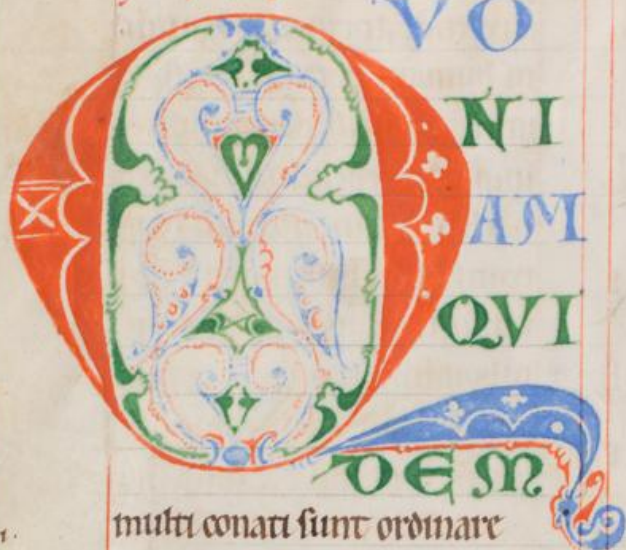 QVO
NI
AM
QVI
DEM
multi conati sunt ordinare